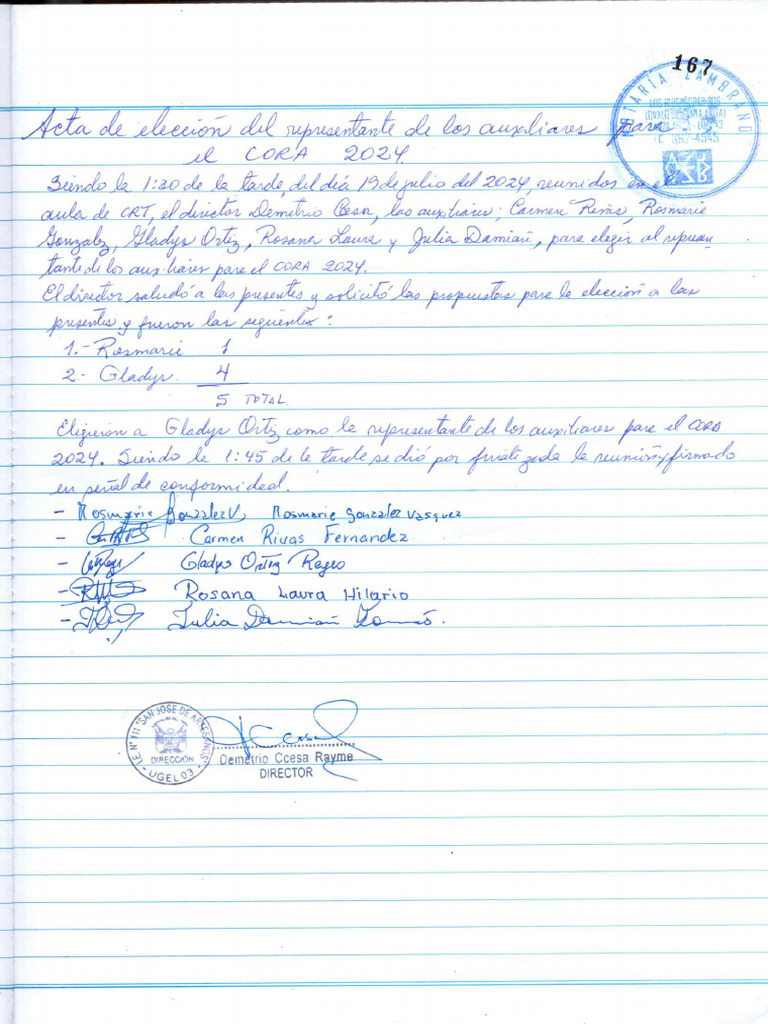 167
NOTARÍA ZAMBRANO
Acta de elección del representante de los auxiliares para
el CORA 2024.
Siendo la 1:30 de la tarde, del día 19 de julio del 2024, reunidos en el
aula de CRT, el director Demetrio Ccesa, las auxiliares; Carmen Rivas, Rosmarie
Gonzalez, Gladys Ortiz, Rosana Laura y Julia Damian, para elegir al represen-
tante de los auxiliares para el CORA 2024.
El director saludó a las presentes y solicitó las propuestas para la elección a las
presentes y fueron las siguientes:
1.- Rosmarie 1
2.- Gladys. 4
5 TOTAL
Eligieron a Gladys Ortiz como la representante de los auxiliares para el CORA
2024. Siendo la 1:45 de la tarde se dió por finalizada la reunión y firmado
en señal de conformidad.
- Rosmarie Gonzalez V. Rosmarie Gonzalez Vasquez
- Carmen Rivas Fernandez
- Gladys Ortiz
- Rosana Laura Hilario
- Julia Damian
I.E. N° 111 "SAN JOSE DE ARTESANOS"
DIRECCIÓN
UGEL 03
Demetrio Ccesa Rayme
DIRECTOR